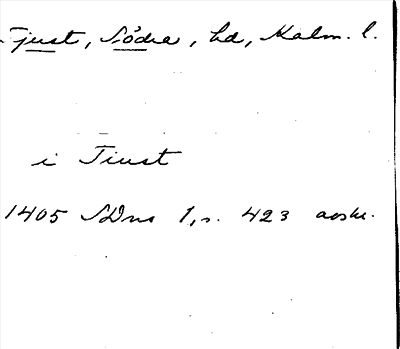 Tjust, Södra, hd, Kalm. l.
i Tiust
1405 SDns 1, s. 423 avskr.